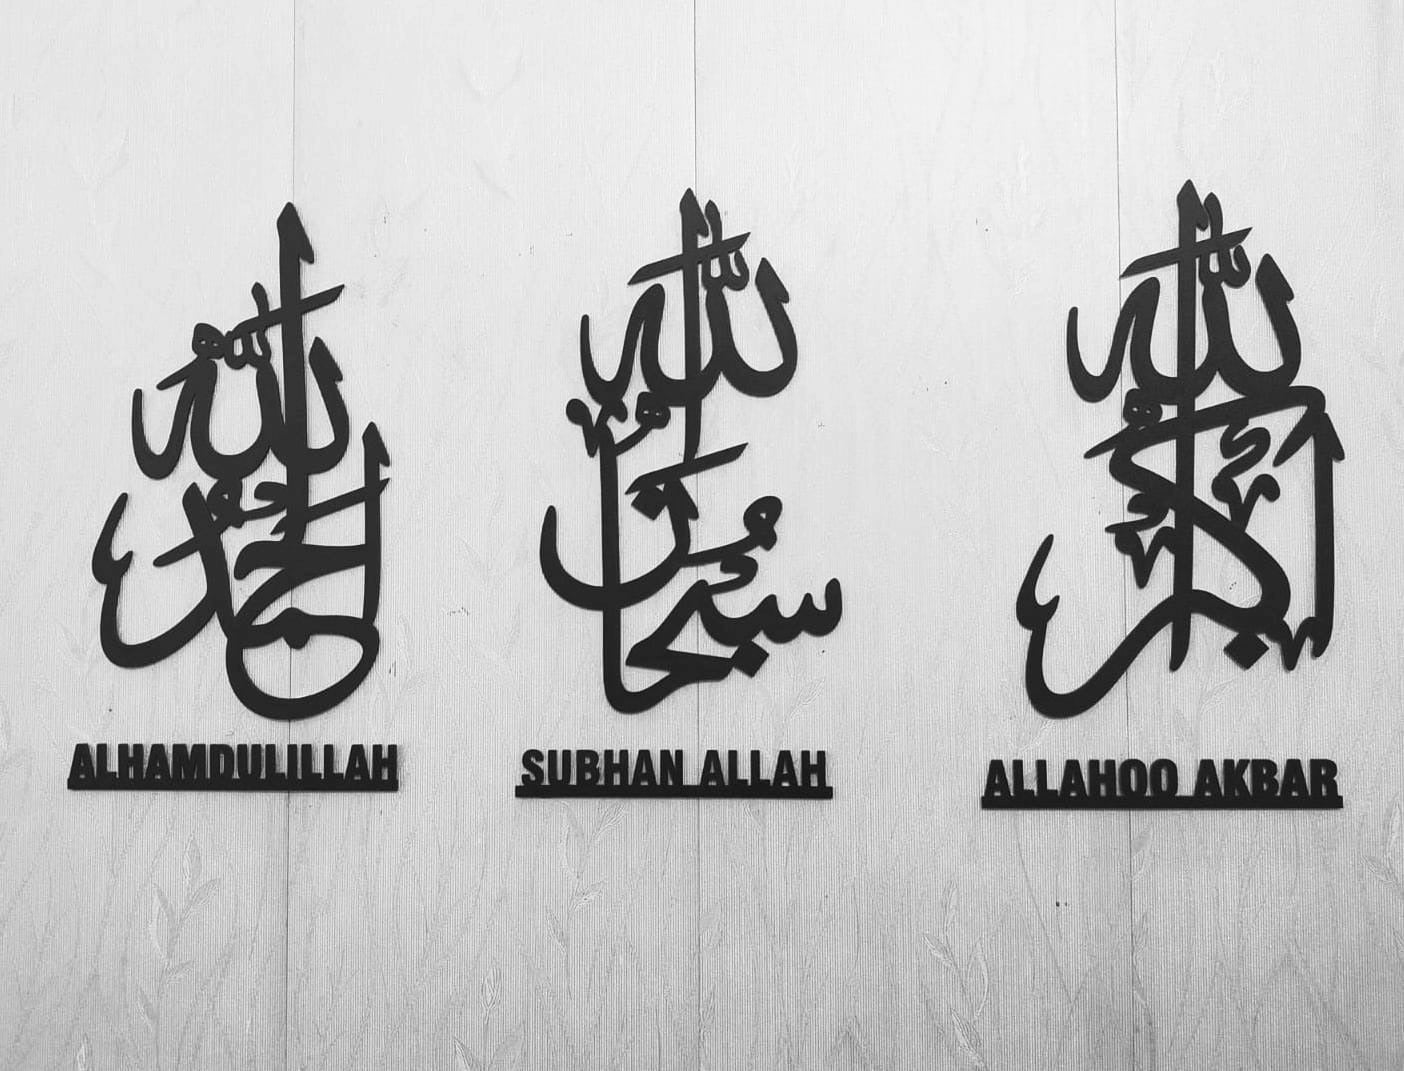 الحمد لله
ALHAMDULILLAH
سبحان الله
SUBHAN ALLAH
الله أكبر
ALLAHOO AKBAR